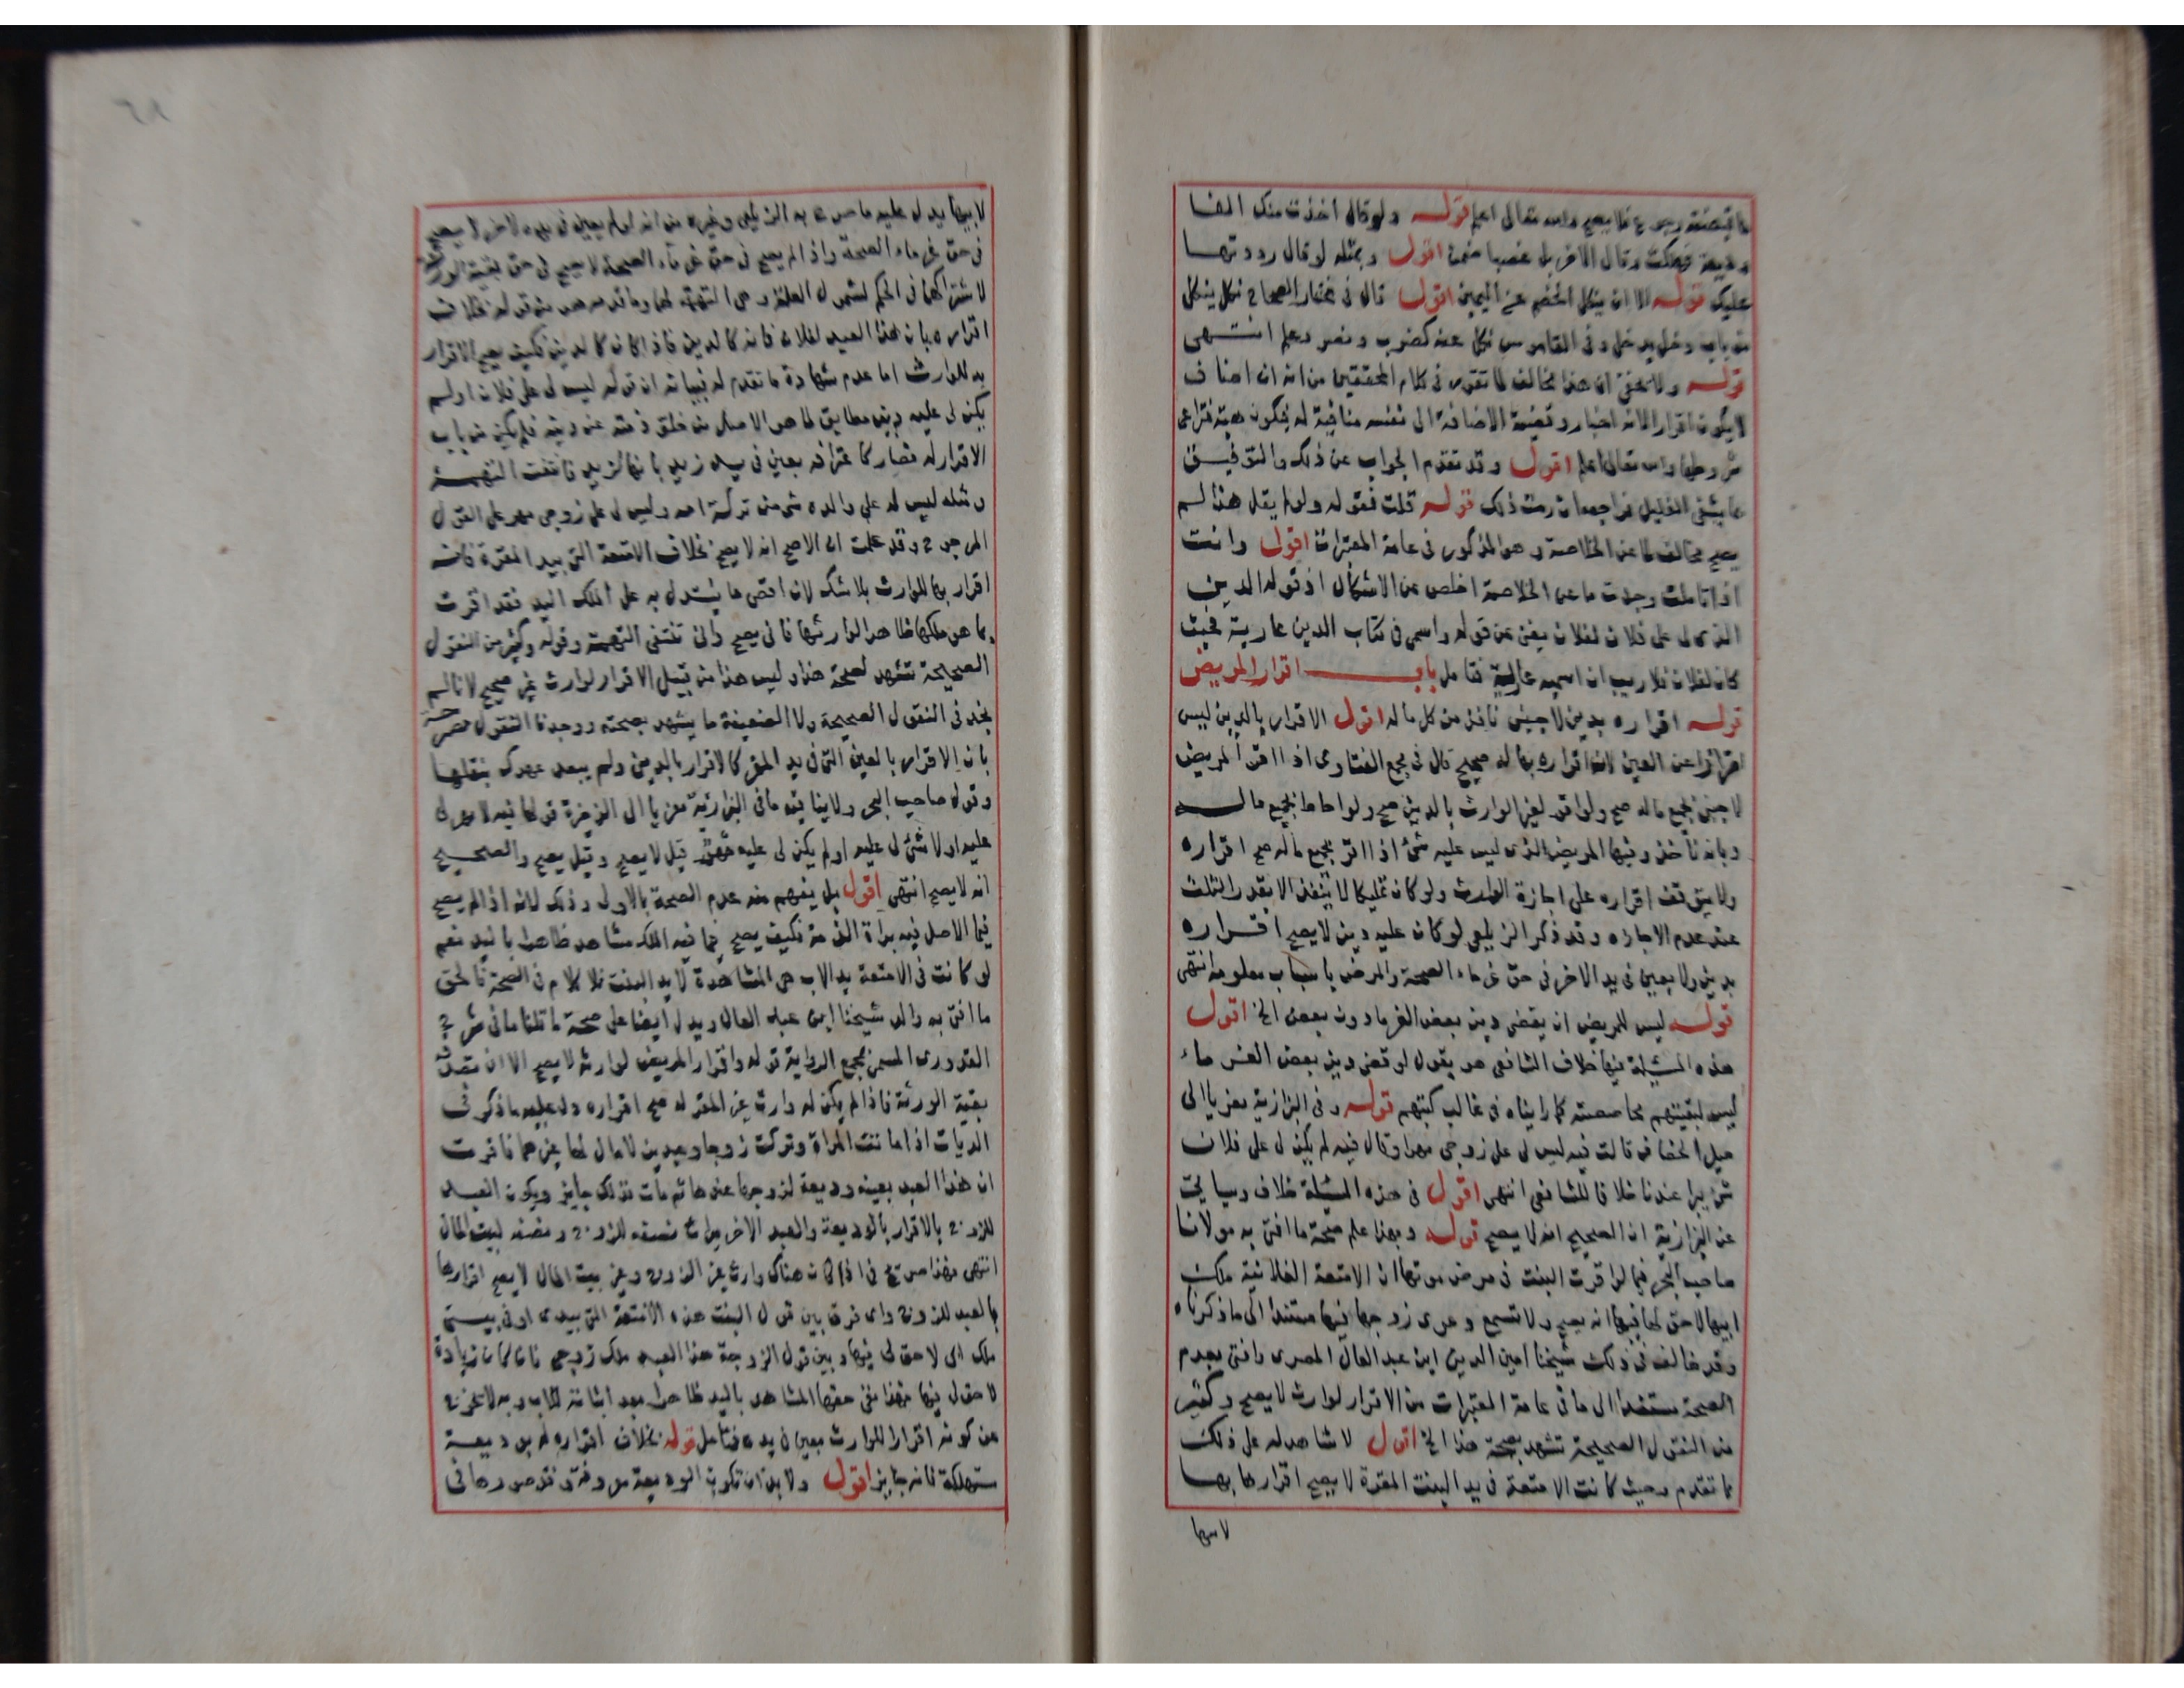 ما قبضته رجوع فلا يصح والله تعالى اعلم قوله ولو قال اخذت منك الفا
وديعة فهلكت وقال الاخر بل غصبا ضمن اقول وبمثله لو قال رددتها
عليك قوله الا ان ينكل الخصم عن اليمين اقول قال في مختار الصحاح نكل ينكل
من باب دخل يدخل وفي القاموس نكل عنه كضرب ونصر وعلم انتهى
قوله ولا يخفى ان هذا مخالف لما تقرر في كلام المحققين من انه ان اضاف
لا يكون اقرارا لانه اخبار وقضية الاضافة الى نفسه منافية له فيكون هبة فتراعى
شروطها والله تعالى اعلم اقول وقد تقدم الجواب عن ذلك والتوفيق
بما يشفي الغليل فراجعه ان رمت ذلك قوله قلت فقوله ولو لم يقل هذا لم
يصح مخالف لما عن الخلاصة وهو المذكور في عامة المعتبرات اقول وانت
اذا تاملت وجدت ما عن الخلاصة اخلص عن الاشكال اذ قوله الدين
الذي لي على فلان لفلان يغني عن قوله واسمي في كتاب الدين عارية فحيث
كان لفلان فلا ريب ان اسمه عارية فتامل باب اقرار المريض
قوله اقراره بدين لاجنبي نافذ من كل ماله اقول الاقرار بالدين ليس
احترازا عن العين لان اقراره بها له صحيح قال في مجمع الفتاوى اذا اقر المريض
لاجنبي بجميع ماله صح ولو اقر لغير الوارث بالدين صح ولو احاط بجميع ماله
وبانه ناخذ وفيها المريض الذي ليس عليه شئ اذا اقر بجميع ماله صح اقراره
ولا يتوقف اقراره على اجازة الوارث ولو كان تمليكا لا ينفذ الا بقدر الثلث
عند عدم الاجازه وقد ذكر الزيلعي لو كان عليه دين لا يصح اقراره
بدين ولا بعين في يد الاخر في حق غرماء الصحة والمرض باسباب معلومة انتهى
قوله ليس للمريض ان يقضي دين بعض الغرما دون بعض الخ اقول
هذه المسئلة فيها خلاف الشافعي هو يقول لو قضى دين بعض الغرماء
ليس لبقيتهم محاصصته كما رايناه في غالب كتبهم قوله وفي البزازية معزيا الى
حيل الخصاف قالت فيه ليس لي على زوجي مهر او قال فيه لم يكن لي على فلان
شئ يبرا عندنا خلافا للشافعي انتهى اقول في هذه المسئلة خلاف وسياتي
عن البزازية ان الصحيح انه لا يصح قوله وبهذا علم صحة ما افتى به مولانا
صاحب البحر فيما لو اقرت البنت في مرض موتها ان الامتعة الفلانية ملك
ابيها لا حق لها فيها انه يصح ولا تسمع دعوى زوجها فيها مستندا الى ما ذكرناه
وقد خالفه في ذلك شيخنا امين الدين ابن عبد العال المصري وافتى بعدم
الصحة مستندا الى ما في عامة المعتبرات من الاقرار لوارث لا يصح وكثير
من النقول الصحيحة تشهد بصحة هذا الخ اقول لا شاهد له على ذلك
مما تقدم وحيث كانت الامتعة في يد البنت المقرة لا يصح اقرارها بها
لابيها
لابيها يدل عليه ما صرح به الزيلعي وغيره من انه لو لم يعين في يده لاخر لا يصح
في حق غرماء الصحة واذا لم يصح في حق غرماء الصحة لا يصح في حق بقية الورثة
لاشتراكهما في الحكم لشمول العلة وهي التهمة لهما وما قدمه من قوله بخلاف
اقراره بان هذا العبد لفلان فانه كالدين فاذا كان كالدين فكيف يصح الاقرار
به للوارث اما عدم شهادة ما تقدم له فبيانه ان قوله ليس لي على فلان او لم
يكن لي عليه دين مطابق لما هو الاصل من خلو ذمته عن دينه فلم يكن من باب
الاقرار له فصار كاعترافه بعين في يد زيد بانها لزيد فانتفت التهمة
ومثله ليس له على والده شئ من تركة امه وليس لي على زوجي مهر على القول
المرجوح وقد علمت ان الاصح انه لا يصح بخلاف الامتعة التي بيد المقرة فانه
اقرار بها للوارث بلا شك لان اقصى ما يستدل به على الملك اليد فقد اقرت
بما هو ملكها ظاهرا لوارثها فانى يصح وانى تنتفى التهمة وقوله وكثير من النقول
الصحيحة تشهد لصحة هذا وليس هذا من قبيل الاقرار لوارث غير صحيح لانا لم
نجد في النقول الصحيحة ولا الضعيفة ما يشهد بصحته ووجدنا النقول مصرحة
بان الاقرار بالعين التي في يد المقر كالاقرار بالدين ولم يبعد عهدك بنقلها
وقول صاحب البحر ولا ينافيه ما في البزازية معزيا الى الذخيرة قولها فيه لا مهر لي
عليه او لا شئ لي عليه او لم يكن لي عليه مهر قيل لا يصح وقيل يصح والصحيح
انه لا يصح انتهى اقول بل يفهم منه عدم الصحة بالاولى وذلك لانه اذا لم يصح
فيما الاصل فيه براة الذمة فكيف يصح فيما فيه الملك مشاهد ظاهرا باليد نعم
لو كانت في الامتعة يد الاب هي المشاهدة لا يد البنت فلا كلام في الصحة فالحق
ما افتى به والد شيخنا ابن عبد العال ويدل ايضا على صحة ما قلنا ما في شرح
القدوري المسمى بمجمع الرواية قوله واقرار المريض لوارثه لا يصح الا ان تصدقه
بقية الورثة فاذا لم يكن له وارث غير المقر له صح اقراره دل عليه ما ذكر في
الديات اذا ماتت المراة وتركت زوجا وعبدين لا مال لها غيرهما فاقرت
ان هذا العبد بعينه وديعة لزوجها عندها ثم ماتت فذلك جايز ويكون العبد
للزوج بالاقرار بالوديعة والعبد الاخر ميراث نصفه للزوج ونصفه لبيت المال
انتهى فهذا صريح في اذا كان هناك وارث غير الزوج وغير بيت المال لا يصح اقرارها
بالعبد للزوج واي فرق بين قول البنت هذه الامتعة التي بيدي او في بيتي
ملك ابي لا حق لي فيها وبين قول الزوجة هذا العبد ملك زوجي فان كان زيادة
لا حق لي فيها فهذا نفي حقها المشاهد باليد ظاهرا بعد اثباته للاب وبه لا تخرج
عن كونه اقرارا للوارث بعين في يده فتامل قوله بخلاف اقراره له بوديعة
مستهلكة فانه جايز اقول ولا بد ان تكون الوديعة معروفة وقد صورها في